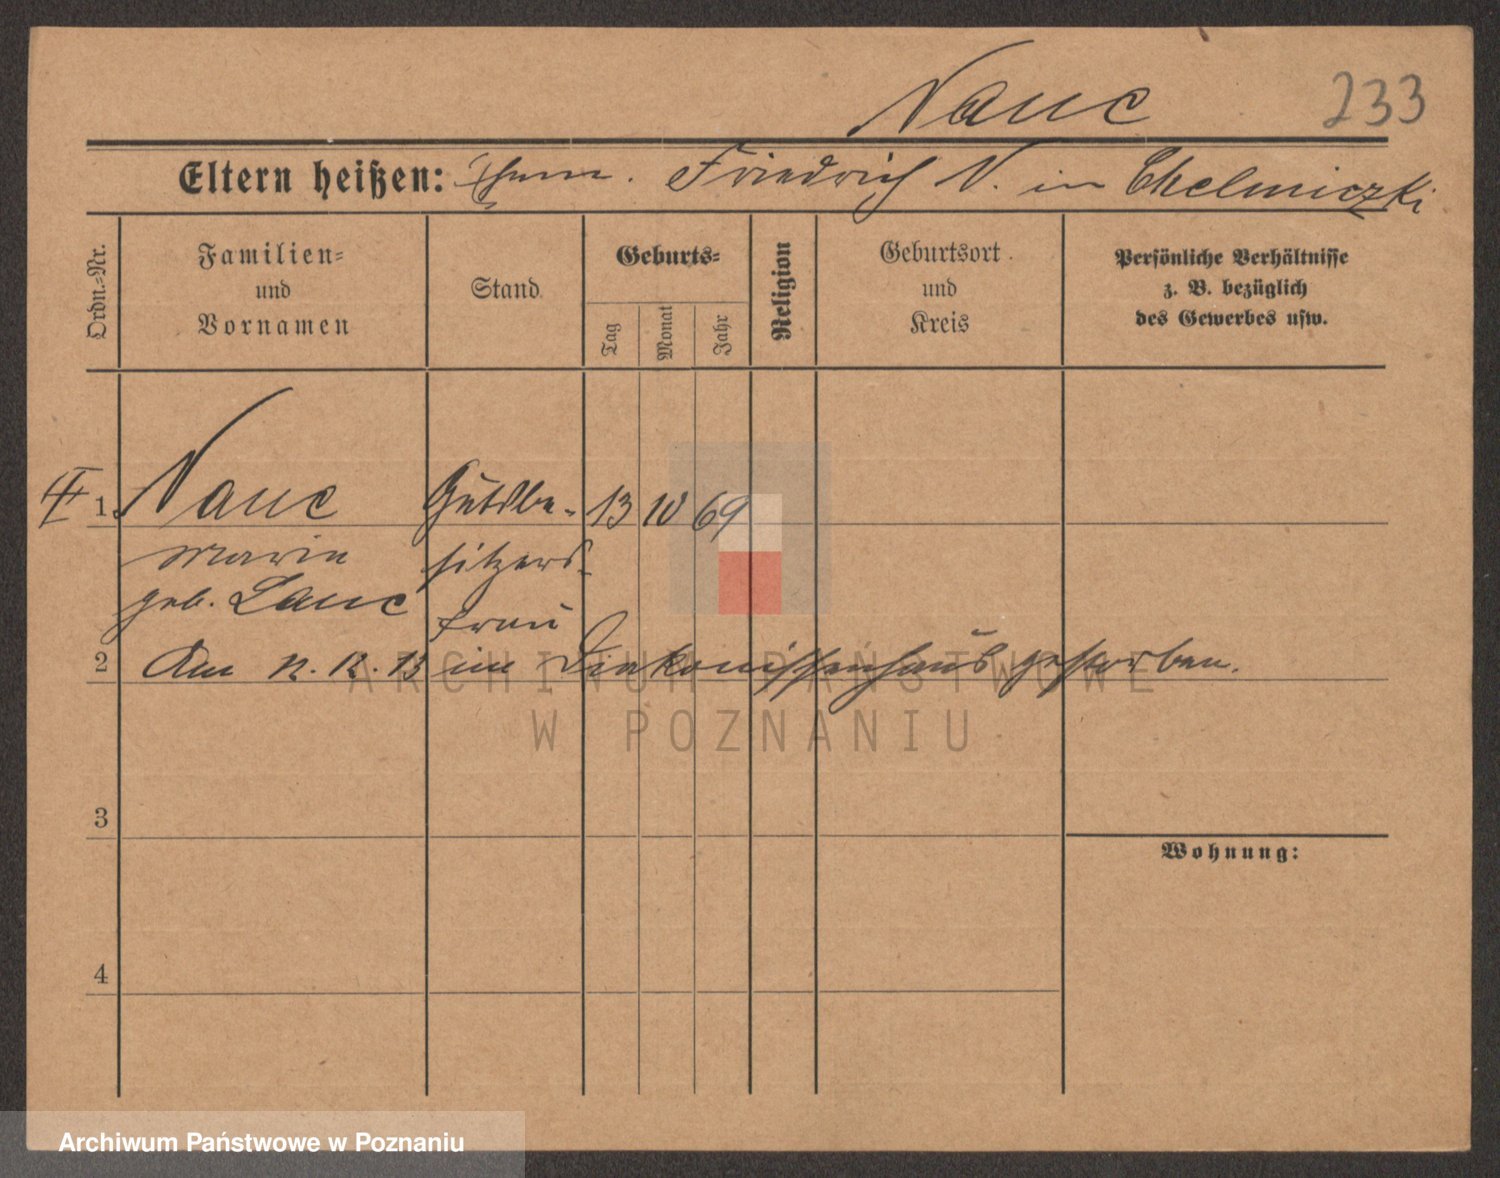 Nauc
233
Eltern heißen: Ehem. Friedrich N. in Chelmiczki
Ordn.-Nr.
Familien-
und
Vornamen
Stand
Geburts-
Tag
Monat
Jahr
Religion
Geburtsort
und
Kreis
Persönliche Verhältnisse
z. B. bezüglich
des Gewerbes usw.
1. Nauc Gutsbe- 13 10 69
Marie sitzers-
geb. Lauc frau
2 Am 12. 12. 13 im Diakonissenhaus gestorben.
ARCHIWUM PAŃSTWOWE
W POZNANIU
3
Wohnung:
4
Archiwum Państwowe w Poznaniu